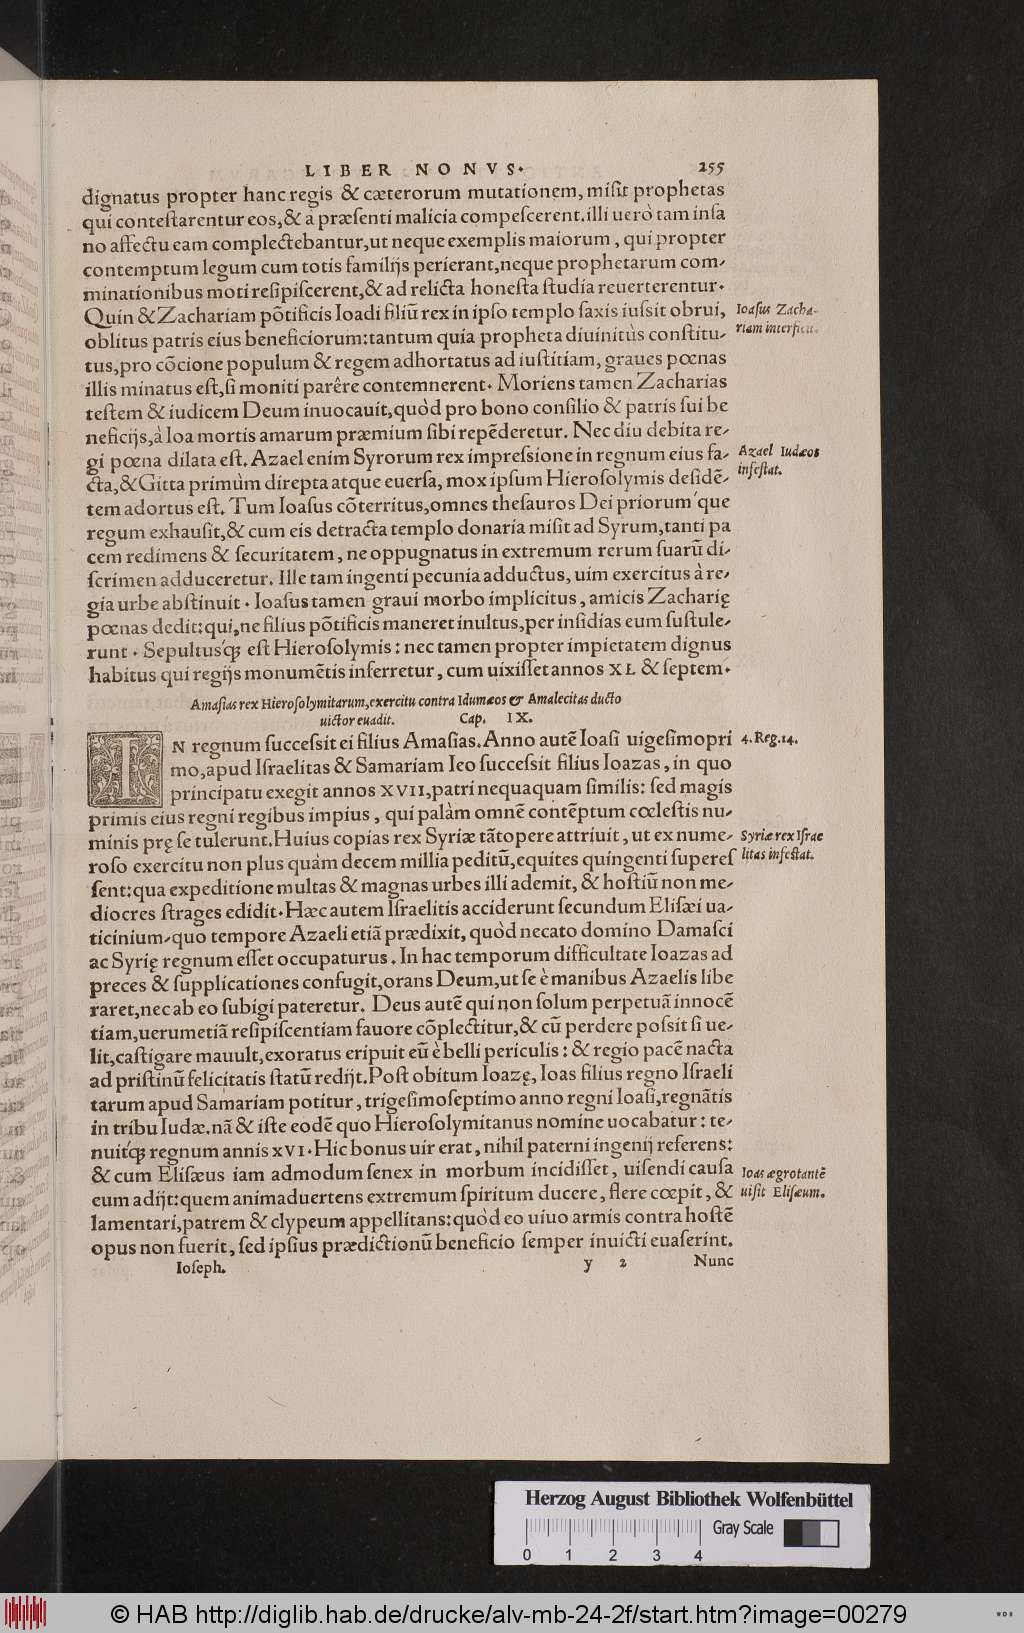 LIBER NONVS.
255
dignatus propter hanc regis & cæterorum mutationem, misit prophetas
qui contestarentur eos,& à præsenti malicia compescerent.illi uerò tam insa
no affectu eam complectebantur,ut neque exemplis maiorum, qui propter
contemptum legum cum totis familijs perierant,neque prophetarum com-
minationibus moti resipiscerent,& ad relicta honesta studia reuerterentur.
Quin & Zachariam põtificis Ioadi filiũ rex in ipso templo saxis iussit obrui,
Ioasus Zacha-
riam interficit.
oblitus patris eius beneficiorum:tantum quia propheta diuinitùs constitu-
tus,pro cõcione populum & regem adhortatus ad iustitiam, graues pœnas
illis minatus est,si moniti parêre contemnerent. Moriens tamen Zacharias
testem & iudicem Deum inuocauit,quòd pro bono consilio & patris sui be
neficijs,à Ioa mortis amarum præmium sibi repẽderetur. Nec diu debita re-
gi pœna dilata est. Azael enim Syrorum rex impressione in regnum eius fa-
Azael Iudæos
infestat.
cta,& Gitta primùm direpta atque euersa, mox ipsum Hierosolymis desidẽ-
tem adortus est. Tum Ioasus cõterritus,omnes thesauros Dei priorum'que
regum exhausit,& cum eis detracta templo donaria misit ad Syrum,tanti pa
cem redimens & securitatem, ne oppugnatus in extremum rerum suarũ di-
scrimen adduceretur. Ille tam ingenti pecunia adductus, uim exercitus à re-
gia urbe abstinuit. Ioasus tamen graui morbo implicitus, amicis Zacharię
pœnas dedit:qui,ne filius põtificis maneret inultus,per insidias eum sustule-
runt. Sepultus'q̃ est Hierosolymis: nec tamen propter impietatem dignus
habitus qui regijs monumẽtis inferretur, cum uixisset annos XL & septem.
Amasias rex Hierosolymitarum,exercitu contra Idumæos & Amalecitas ducto
uictor euadit. Cap. IX.
IN regnum successit ei filius Amasias. Anno autẽ Ioasi uigesimopri
4. Reg.14.
mo,apud Israelitas & Samariam Ieo successit filius Ioazas, in quo
principatu exegit annos XVII,patri nequaquam similis: sed magis
primis eius regni regibus impius, qui palàm omnẽ contẽptum cœlestis nu-
minis prę se tulerunt. Huius copias rex Syriæ tãtopere attriuit, ut ex nume-
Syriæ rex Israe
litas infestat.
roso exercitu non plus quàm decem millia peditũ,equites quingenti superes
sent:qua expeditione multas & magnas urbes illi ademit, & hostiũ non me-
diocres strages edidit. Hæc autem Israelitis acciderunt secundum Elisæi ua-
ticinium,quo tempore Azaeli etiã prædixit, quòd necato domino Damasci
ac Syrię regnum esset occupaturus. In hac temporum difficultate Ioazas ad
preces & supplicationes confugit,orans Deum,ut se è manibus Azaelis libe
raret,nec ab eo subigi pateretur. Deus autẽ qui non solum perpetuã innocẽ
tiam,uerumetiã resipiscentiam fauore cõplectitur,& cũ perdere possit si ue-
lit,castigare mauult,exoratus eripuit eũ è belli periculis: & regio pacẽ nacta
ad pristinũ felicitatis statũ redijt. Post obitum Ioazę, Ioas filius regno Israeli
tarum apud Samariam potitur, trigesimoseptimo anno regni Ioasi,regnãtis
in tribu Iudæ.nã & iste eodẽ quo Hierosolymitanus nomine uocabatur: te-
nuit'q̃ regnum annis XVI. Hic bonus uir erat, nihil paterni ingenij referens:
& cum Elisæus iam admodum senex in morbum incidisset, uisendi causa
Ioas ægrotantẽ
uisit Elisæum.
eum adijt:quem animaduertens extremum spiritum ducere, flere cœpit, &
lamentari,patrem & clypeum appellitans:quòd eo uiuo armis contra hostẽ
opus non fuerit, sed ipsius prædictionũ beneficio semper inuicti euaserint.
Ioseph. y 2 Nunc
Herzog August Bibliothek Wolfenbüttel
Gray Scale
0 1 2 3 4
© HAB http://diglib.hab.de/drucke/alv-mb-24-2f/start.htm?image=00279